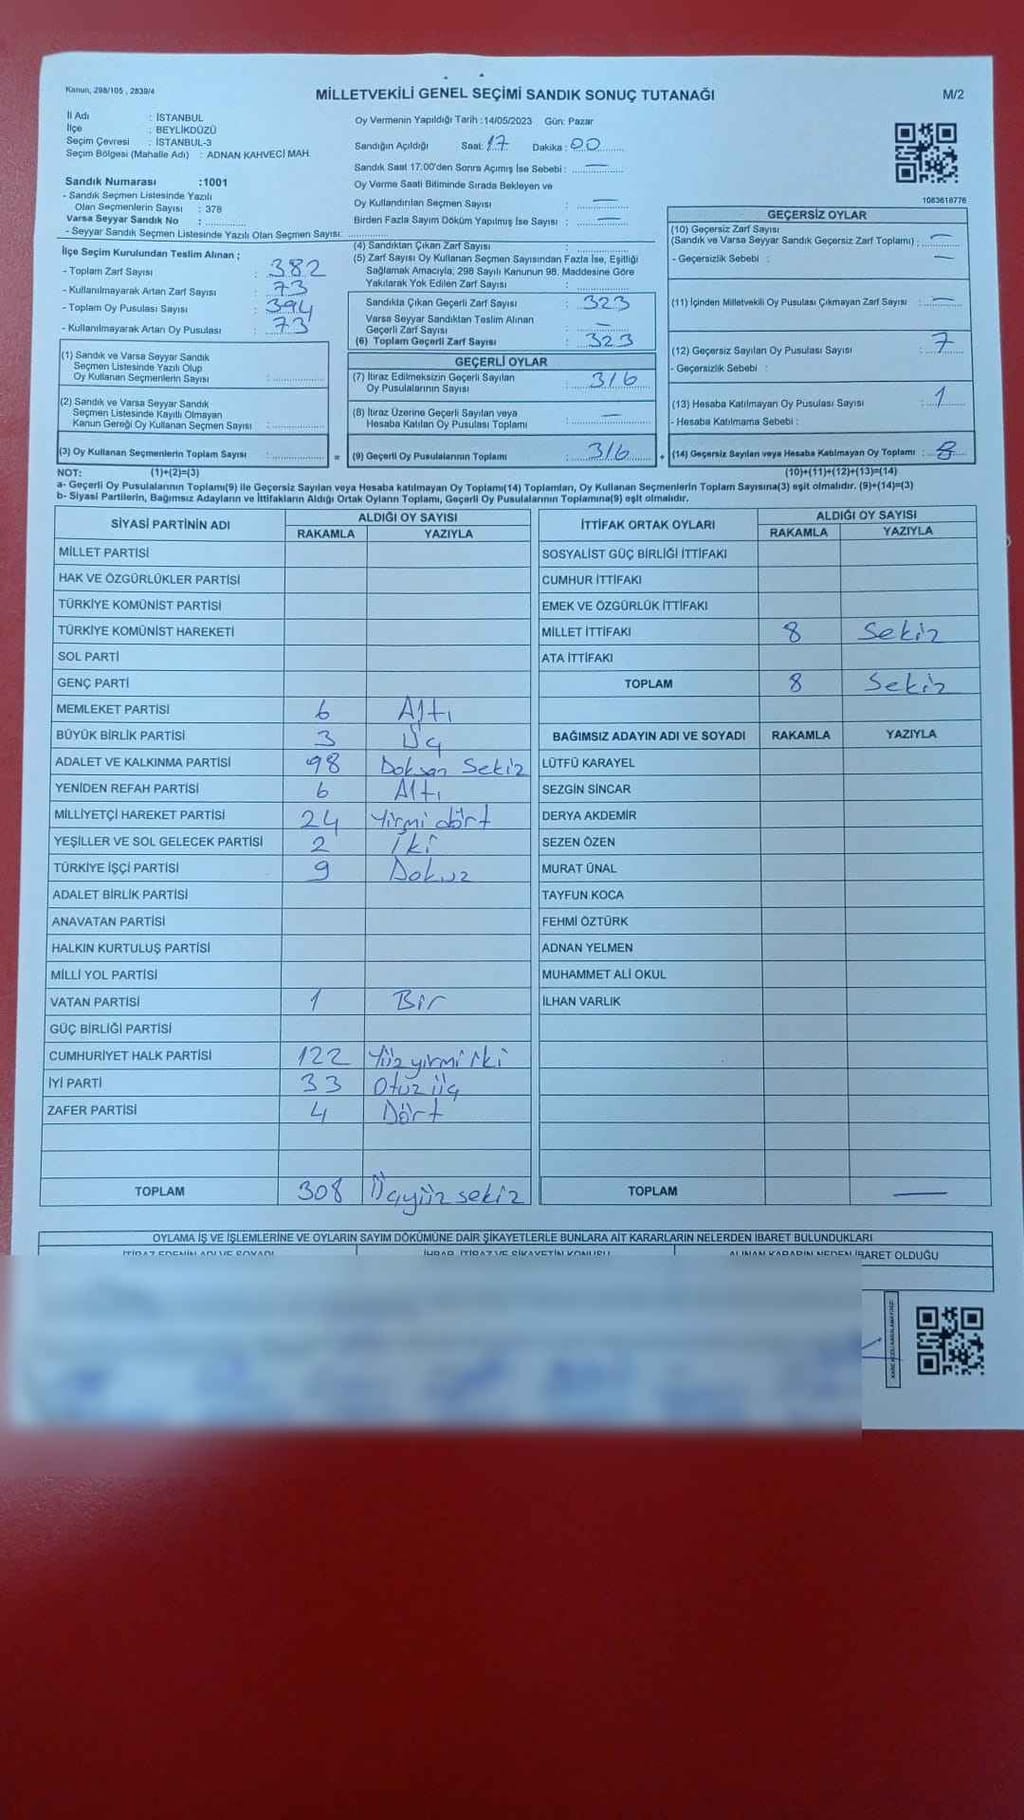 Kanun, 298/105 , 2839/4
MİLLETVEKİLİ GENEL SEÇİMİ SANDIK SONUÇ TUTANAĞI
M/2
İl Adı : İSTANBUL
İlçe : BEYLİKDÜZÜ
Seçim Çevresi : İSTANBUL-3
Seçim Bölgesi (Mahalle Adı) : ADNAN KAHVECİ MAH.
Sandık Numarası :1001
- Sandık Seçmen Listesinde Yazılı
Olan Seçmenlerin Sayısı : 378
Varsa Seyyar Sandık No :
- Seyyar Sandık Seçmen Listesinde Yazılı Olan Seçmen Sayısı:
Oy Vermenin Yapıldığı Tarih :14/05/2023 Gün: Pazar
Sandığın Açıldığı Saat: 17 Dakika : 00
Sandık Saat 17.00'den Sonra Açımış İse Sebebi : —
Oy Verme Saati Bitiminde Sırada Bekleyen ve
Oy Kullandırılan Seçmen Sayısı : —
Birden Fazla Sayım Döküm Yapılmış İse Sayısı : —
1083618776
İlçe Seçim Kurulundan Teslim Alınan ;
- Toplam Zarf Sayısı : 382
- Kullanılmayarak Artan Zarf Sayısı : 73
- Toplam Oy Pusulası Sayısı : 394
- Kullanılmayarak Artan Oy Pusulası : 73
(1) Sandık ve Varsa Seyyar Sandık
Seçmen Listesinde Yazılı Olup
Oy Kullanan Seçmenlerin Sayısı :
(2) Sandık ve Varsa Seyyar Sandık
Seçmen Listesinde Kayıtlı Olmayan
Kanun Gereği Oy Kullanan Seçmen Sayısı :
(3) Oy Kullanan Seçmenlerin Toplam Sayısı :
(4) Sandıktan Çıkan Zarf Sayısı :
(5) Zarf Sayısı Oy Kullanan Seçmen Sayısından Fazla İse, Eşitliği
Sağlamak Amacıyla; 298 Sayılı Kanunun 98. Maddesine Göre
Yakılarak Yok Edilen Zarf Sayısı :
Sandıkta Çıkan Geçerli Zarf Sayısı : 323
Varsa Seyyar Sandıktan Teslim Alınan
Geçerli Zarf Sayısı : —
(6) Toplam Geçerli Zarf Sayısı : 323
GEÇERLİ OYLAR
(7) İtiraz Edilmeksizin Geçerli Sayılan
Oy Pusulalarının Sayısı : 316
(8) İtiraz Üzerine Geçerli Sayılan veya
Hesaba Katılan Oy Pusulası Toplamı : —
= (9) Geçerli Oy Pusulalarının Toplamı : 316
GEÇERSİZ OYLAR
(10) Geçersiz Zarf Sayısı
(Sandık ve Varsa Seyyar Sandık Geçersiz Zarf Toplamı) : —
- Geçersizlik Sebebi : —
(11) İçinden Milletvekili Oy Pusulası Çıkmayan Zarf Sayısı : —
(12) Geçersiz Sayılan Oy Pusulası Sayısı : 7
- Geçersizlik Sebebi :
(13) Hesaba Katılmayan Oy Pusulası Sayısı : 1
- Hesaba Katılmama Sebebi :
+ (14) Geçersiz Sayılan veya Hesaba Katılmayan Oy Toplamı : 8
NOT: (1)+(2)=(3) (10)+(11)+(12)+(13)=(14)
a- Geçerli Oy Pusulalarının Toplamı(9) ile Geçersiz Sayılan veya Hesaba katılmayan Oy Toplamı(14) Toplamları, Oy Kullanan Seçmenlerin Toplam Sayısına(3) eşit olmalıdır. (9)+(14)=(3)
b- Siyasi Partilerin, Bağımsız Adayların ve İttifakların Aldığı Ortak Oyların Toplamı, Geçerli Oy Pusulalarının Toplamına(9) eşit olmalıdır.
SİYASİ PARTİNİN ADI
ALDIĞI OY SAYISI
RAKAMLA YAZIYLA
MİLLET PARTİSİ
HAK VE ÖZGÜRLÜKLER PARTİSİ
TÜRKİYE KOMÜNİST PARTİSİ
TÜRKİYE KOMÜNİST HAREKETİ
SOL PARTİ
GENÇ PARTİ
MEMLEKET PARTİSİ 6 Altı
BÜYÜK BİRLİK PARTİSİ 3 Üç
ADALET VE KALKINMA PARTİSİ 98 Doksan Sekiz
YENİDEN REFAH PARTİSİ 6 Altı
MİLLİYETÇİ HAREKET PARTİSİ 24 Yirmi dört
YEŞİLLER VE SOL GELECEK PARTİSİ 2 İki
TÜRKİYE İŞÇİ PARTİSİ 9 Dokuz
ADALET BİRLİK PARTİSİ
ANAVATAN PARTİSİ
HALKIN KURTULUŞ PARTİSİ
MİLLİ YOL PARTİSİ
VATAN PARTİSİ 1 Bir
GÜÇ BİRLİĞİ PARTİSİ
CUMHURİYET HALK PARTİSİ 122 Yüz yirmi iki
İYİ PARTİ 33 Otuz üç
ZAFER PARTİSİ 4 Dört
TOPLAM 308 Üçyüz sekiz
İTTİFAK ORTAK OYLARI
ALDIĞI OY SAYISI
RAKAMLA YAZIYLA
SOSYALİST GÜÇ BİRLİĞİ İTTİFAKI
CUMHUR İTTİFAKI
EMEK VE ÖZGÜRLÜK İTTİFAKI
MİLLET İTTİFAKI 8 Sekiz
ATA İTTİFAKI
TOPLAM 8 Sekiz
BAĞIMSIZ ADAYIN ADI VE SOYADI RAKAMLA YAZIYLA
LÜTFÜ KARAYEL
SEZGİN SİNCAR
DERYA AKDEMİR
SEZEN ÖZEN
MURAT ÜNAL
TAYFUN KOCA
FEHMİ ÖZTÜRK
ADNAN YELMEN
MUHAMMET ALİ OKUL
İLHAN VARLIK
TOPLAM —
OYLAMA İŞ VE İŞLEMLERİNE VE OYLARIN SAYIM DÖKÜMÜNE DAİR ŞİKAYETLERLE BUNLARA AİT KARARLARIN NELERDEN İBARET BULUNDUKLARI
İTİRAZ EDENİN ADI VE SOYADI İHBAR, İTİRAZ VE ŞİKAYETİN KONUSU ALINAN KARARIN NEDEN İBARET OLDUĞU